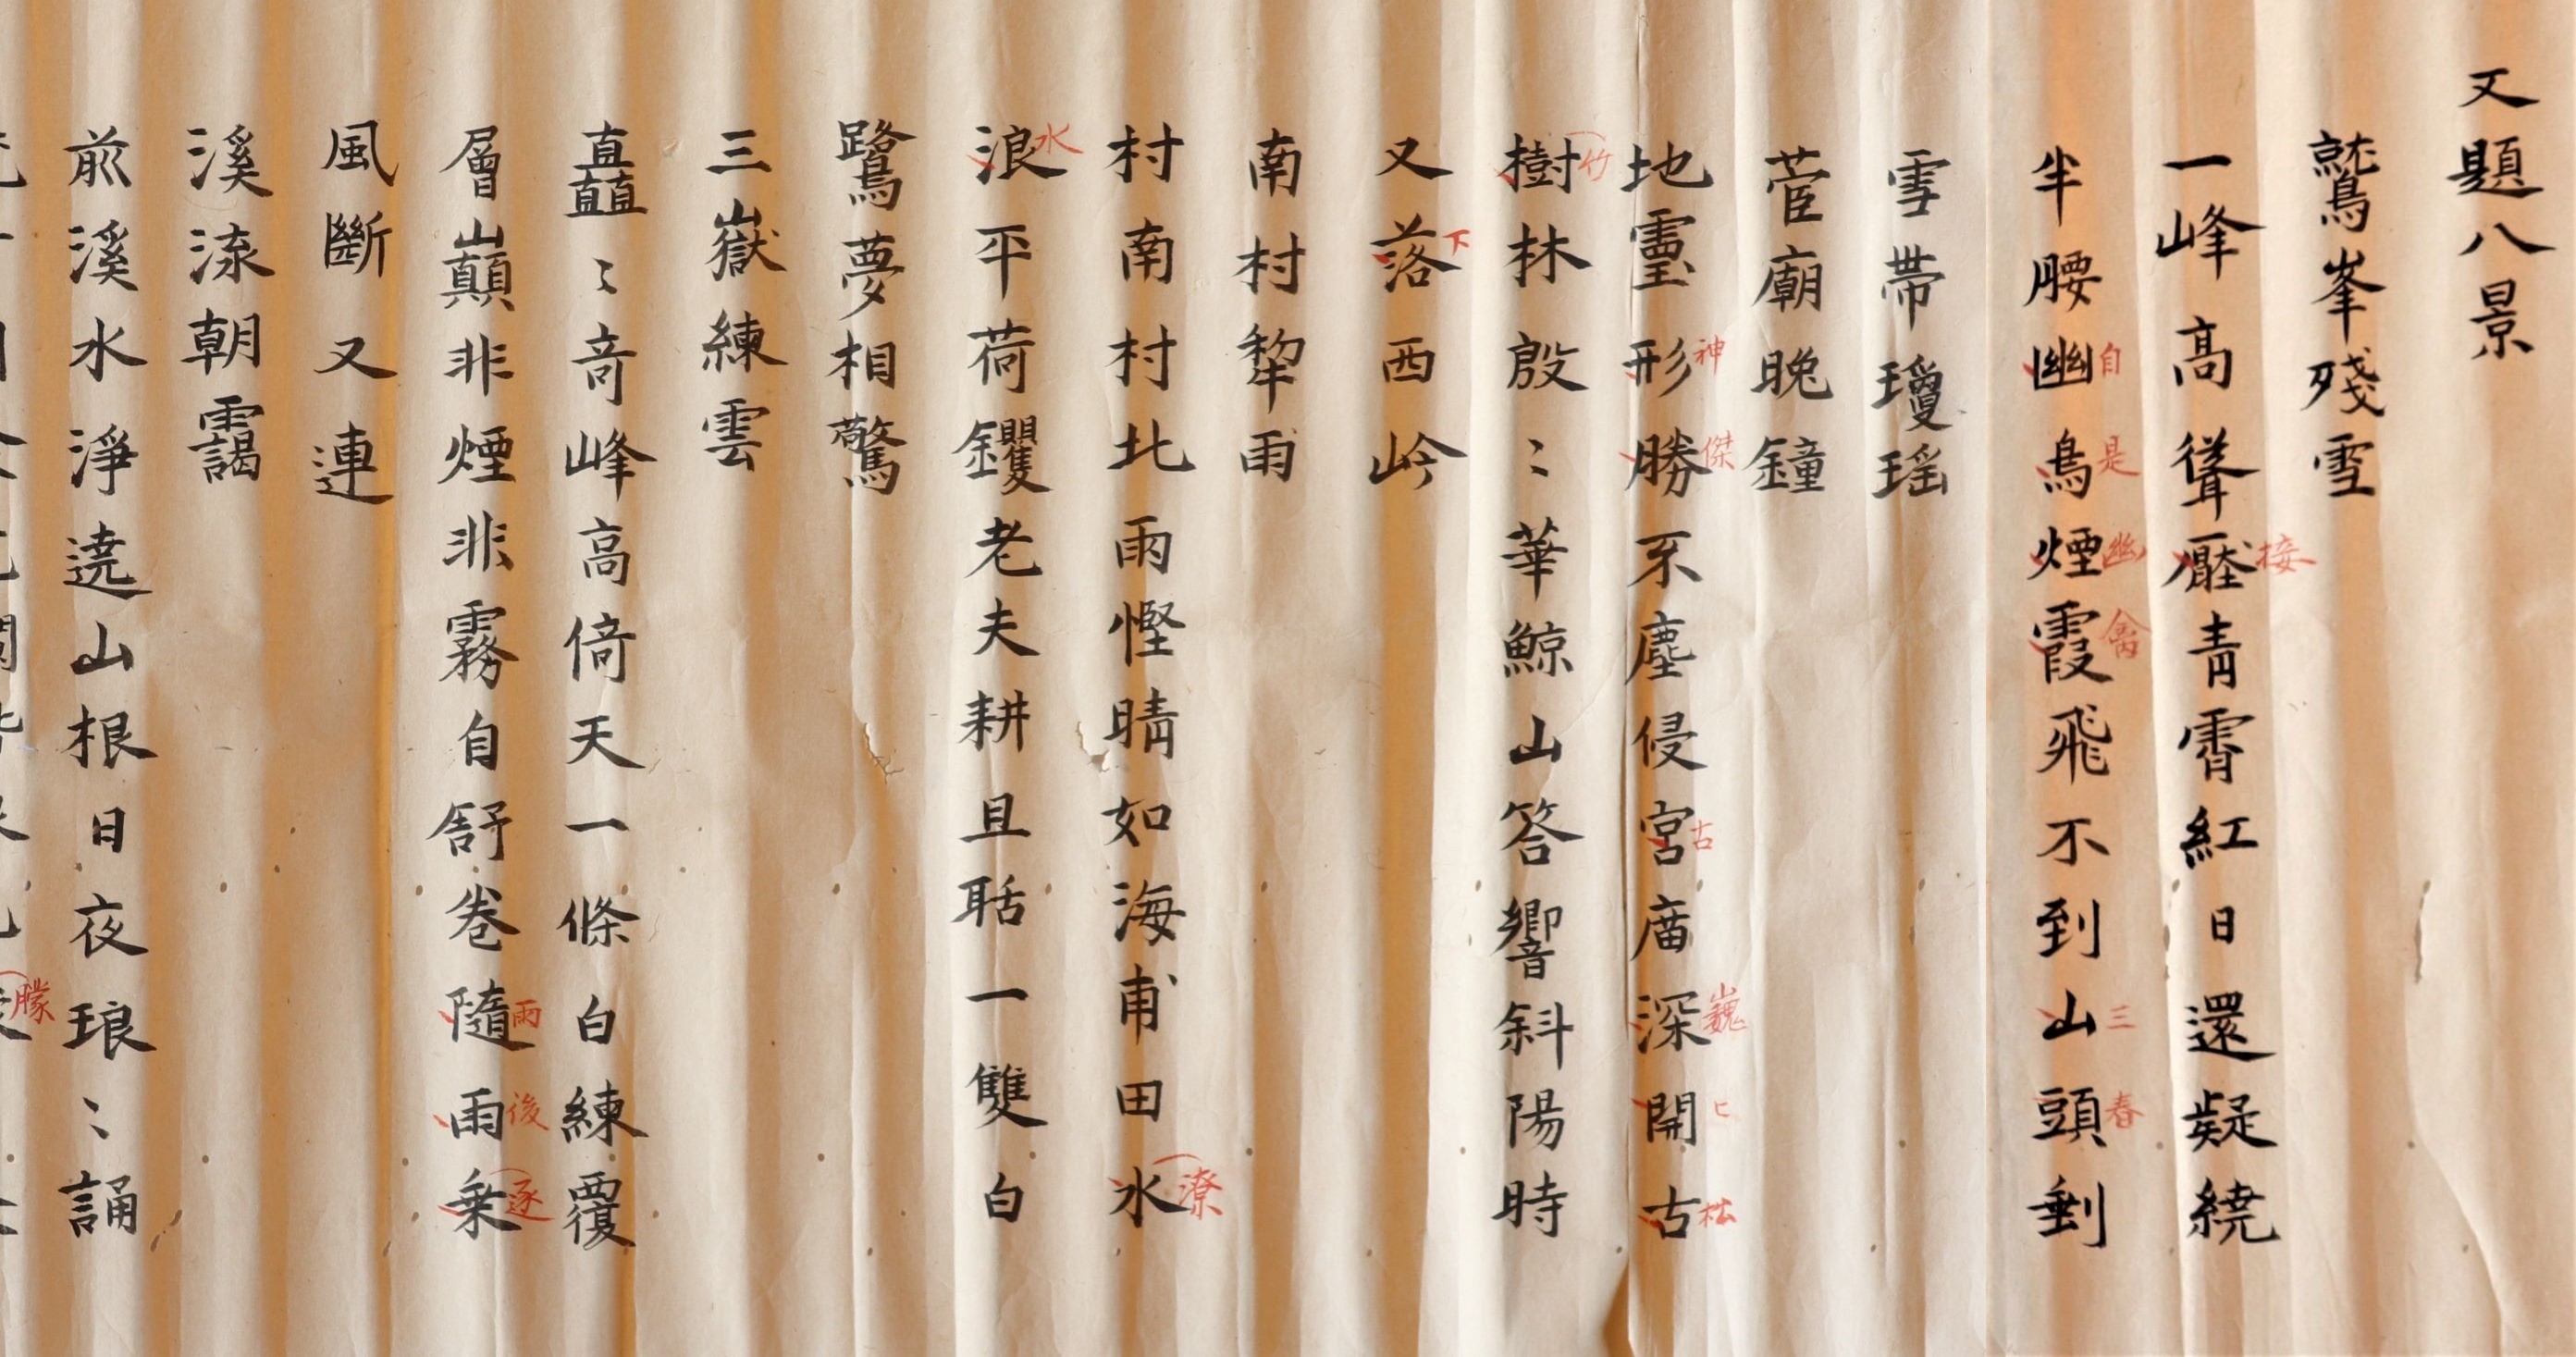 又題八景
鷲峯殘雪
一峰高聳壓青霄紅日還疑繞
接
半腰幽鳥煙霞飛不到山頭剩
自是幽禽三春
雪帶瓊瑶
菅廟晚鐘
地靈形勝不塵侵宮庿深開古
神傑古巍ヒ松
樹林殷〻華鯨山答響斜陽時
竹
又落西岭
下
南村犂雨
村南村北雨慳晴如海甫田水
潦
浪平荷钁老夫耕且聒一雙白
水
鷺夢相驚
三嶽練雲
矗〻奇峰高倚天一條白練覆
層巔非煙非霧自舒卷隨雨乗
雨後逐
風斷又連
溪流朝靄
前溪水淨遶山根日夜琅〻誦
朦